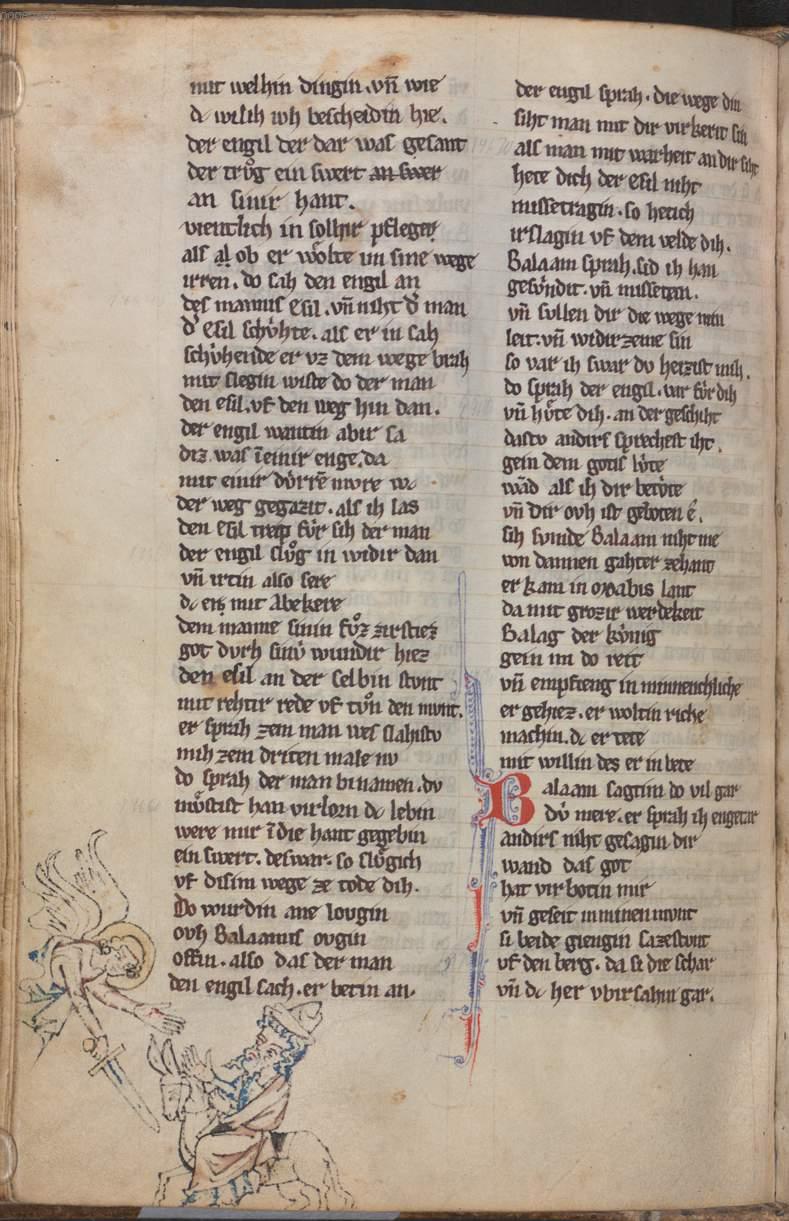 mit welhin dingin .vn̄ wie
dc wil ih iuh bescheidin hie.
der engil der dar was gesant
der trůg ein swert an swer
an sinir hant.
vientlich in solhir pfleger
als al ob er wolte im sine wege
irren. do sah den engil an
des mannis esil .vn̄ niht d̓ man
d̓ esil schvhte. als er in sah
schvhende er vz dem wege brah
mit slegin wiste do der man
den esil. vf den weg hin dan.
der engil wantin abir sa
diz was ī einir enge. da
mit einir dvrrē mvre wc
der weg gegazit. als ih las
den esil treip fvr sih der man
der engil slvg in widir dan
vn̄ irtin also sere
dc er mit abekere
dem manne sinin fvz zirstiez
got dvrh sinv wundir hiez
den esil an der selbin stvnt
mit rehtir rede vf tvn den mvnt.
er sprah zem man wes slahistv
mih zem driten male nv
do sprah der man binamen. dv
mvstist han virlorn dc lebin
were mir ī die hant gegebin
ein swert. deswar. so slvgich
vf disim wege ze tode dih.
Do wurdin ane lovgin
ovh Balaamis ovgin
offin. also das der man
den engil sach. er betin an.
der engil sprah. die wege din
siht man mit dir virkerit sin
als man mit warheit an dir siht
hete dich der esil niht
missetragin. so hetich
irslagin vf dem velde dih.
Balaam sprah. sid ih han
gesvndit. vn̄ missetan.
vn̄ svllen dir die wege min
leit. vn̄ widirzeme sin
so var ih swar dv heizist mih.
do sprah der engil. var fvr dih
vn̄ hvte dih. an der geschiht
dastv andirs sprechest iht.
gein dem gotis lvte
wād als ih dir betvte
vn̄ dir ovh ist geboten e.
sih svmde Balaam niht me
von dannen gahter zehant
er kam in moabis lant
da mit grozir werdekeit
Balag der kvnig
gein im do reit
vn̄ empfieng in minnenchliche
er gehiez. er woltin riche
machin. dc er tete
mit willin des er in bete
Balaam sagtim do vil gar
dv mere. er sprah ih engetar
andirs niht gesagin dir
wand das got
hat virbotin mir
vn̄ geseit in minen mvnt
si beide giengin sazestvnt
vf den berg. da si die schar
vn̄ dc her vbirsahin gar.